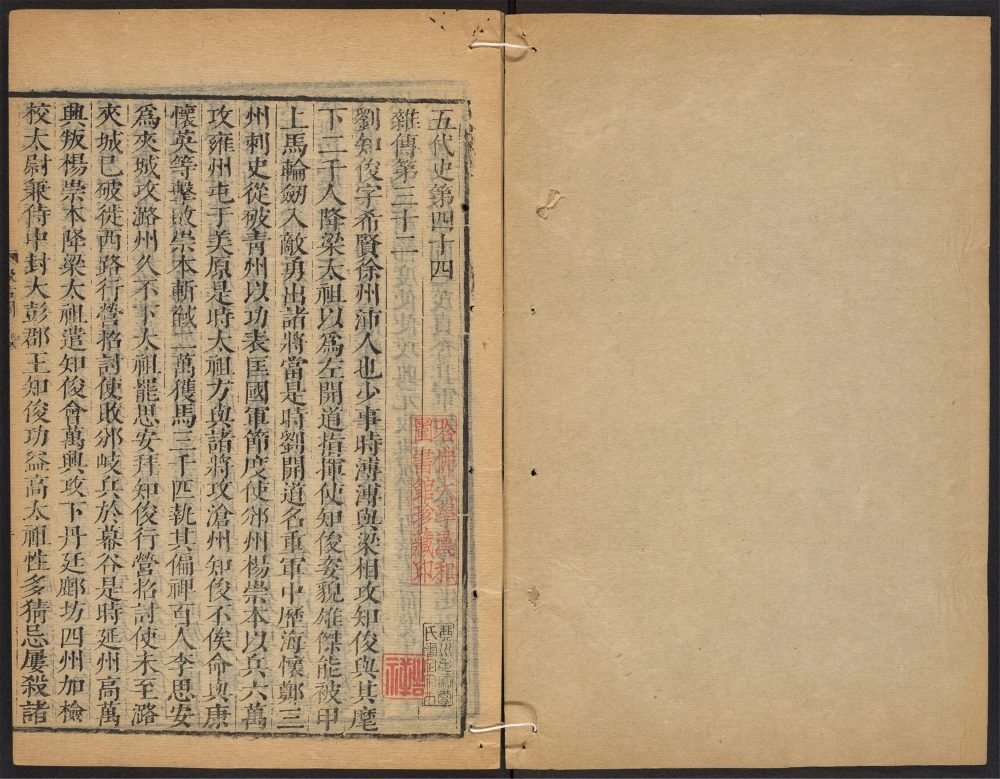 五代史第四十四
雜傳第三十二
劉知俊字希賢徐州沛人也少事時溥溥與梁相攻知俊與其麾
下二千人降梁太祖以爲左開道指揮使知俊姿貌雄傑能被甲
上馬輪劒入敵勇出諸將當是時劉開道名重軍中歷海懷鄭三
州刺史從破青州以功表匡國軍節度使邠州楊崇本以兵六萬
攻雍州屯于美原是時太祖方與諸將攻滄州知俊不俟命與康
懷英等擊敗崇本斬馘二萬獲馬三千匹執其偏裨百人李思安
爲夾城攻潞州久不下太祖罷思安拜知俊行營招討使未至潞
夾城已破徙西路行營招討使敗邠岐兵於幕谷是時延州高萬
興叛楊崇本降梁太祖遣知俊會萬興攻下丹延鄜坊四州加檢
校太尉兼侍中封大彭郡王知俊功益高太祖性多猜忌屢殺諸
哈佛大學漢和
圖書館珍藏印